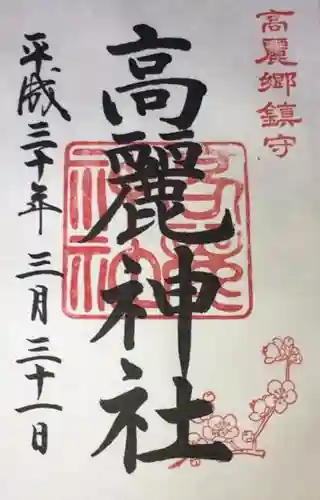 高麗郷鎮守
高麗神社
平成三十年 三月三十一日